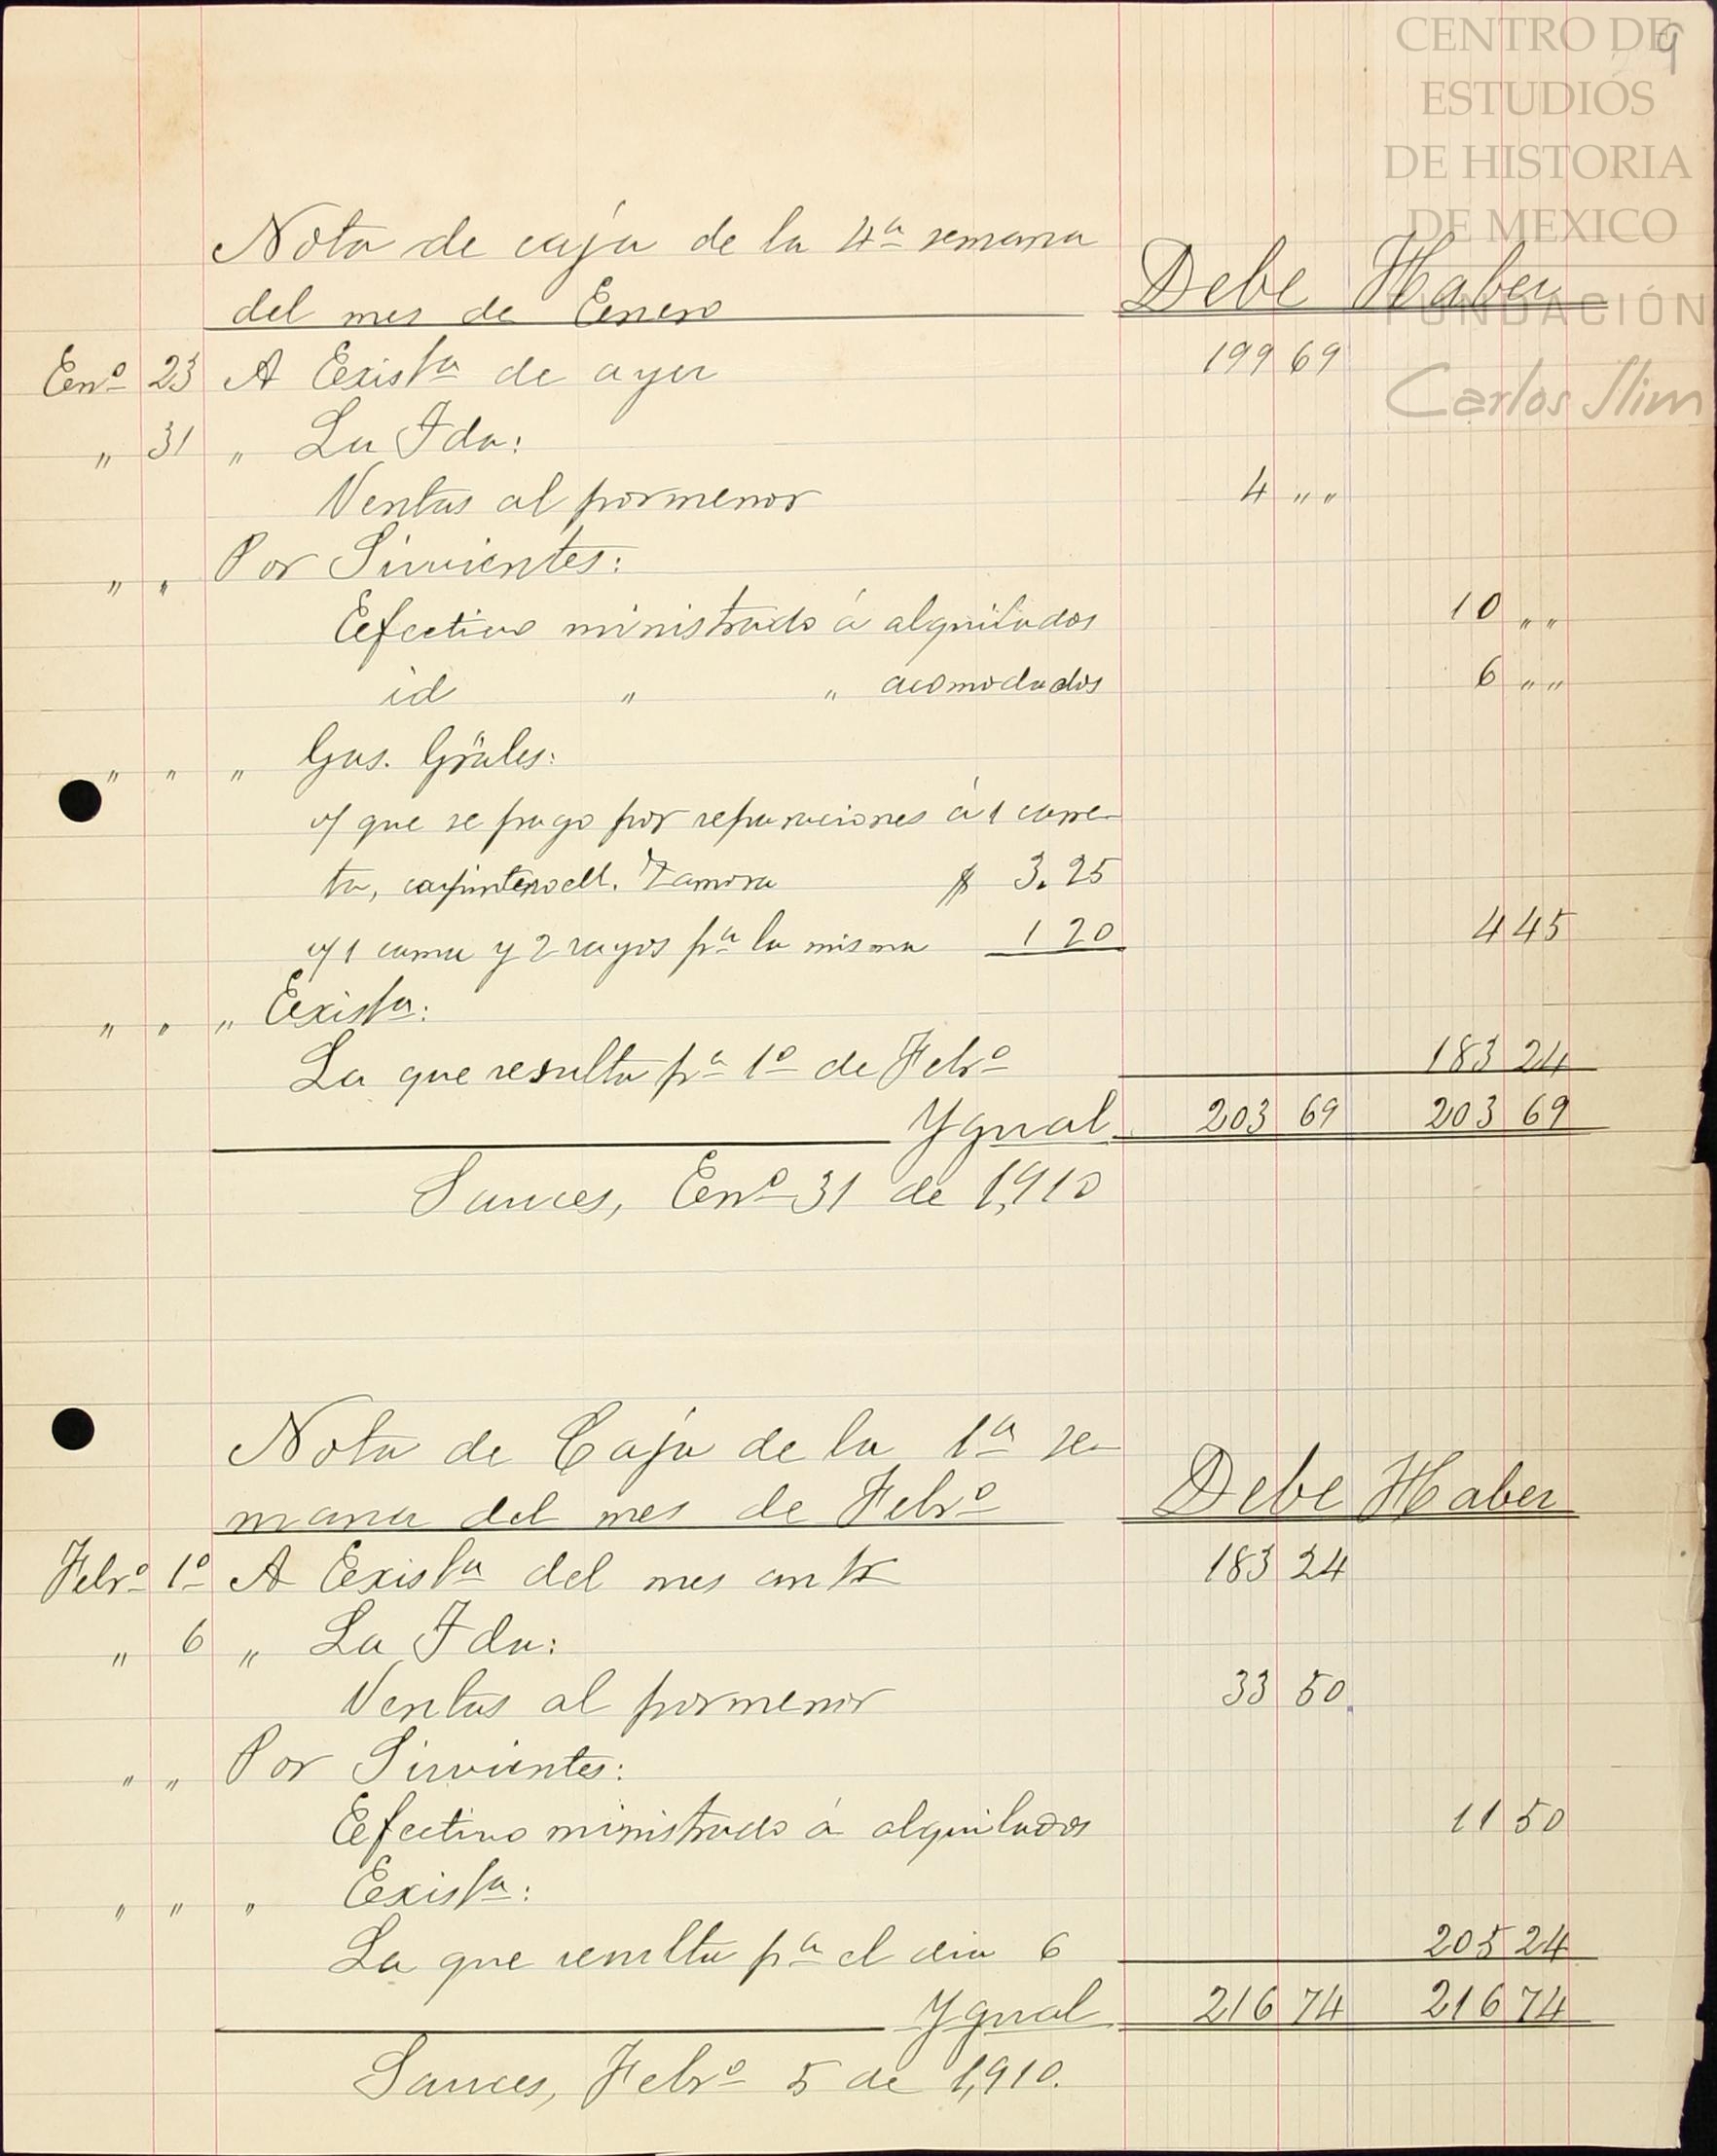 9
CENTRO DE
ESTUDIOS
DE HISTORIA
DE MEXICO
FUNDACIÓN
Carlos Slim
Nota de caja de la 4ª semana
del mes de Enero Debe Haber
Enº 23 A Existª de ayer 199 69
" 31 " La Fda:
Ventas al pormenor 4 " "
" " Por Sirvientes:
Efectivo ministrado á alquilados 10 " "
id " " acomodados 6 " "
" " " Gas. Gräles:
v/ que se pago por reparaciones á 1 carre-
ta, carpintero M. Zamora $ 3.25
v/ 1 cama y 2 rayos pª la misma 1 20 4 45
" " " Existª:
La que resulta pª 1º de Febº 183 24
Ygual 203 69 203 69
Sauces, Enº 31 de 1,910
Nota de Caja de la 1ª se-
mana del mes de Febº Debe Haber
Febº 1º A Existª del mes antr 183 24
" 6 " La Fda:
Ventas al pormenor 33 50
" " Por Sirvientes:
Efectivo ministrado á alquilados 11 50
" " " Existª:
La que resulta pª el dia 6 205 24
Ygual 216 74 216 74
Sauces, Febº 5 de 1,910.